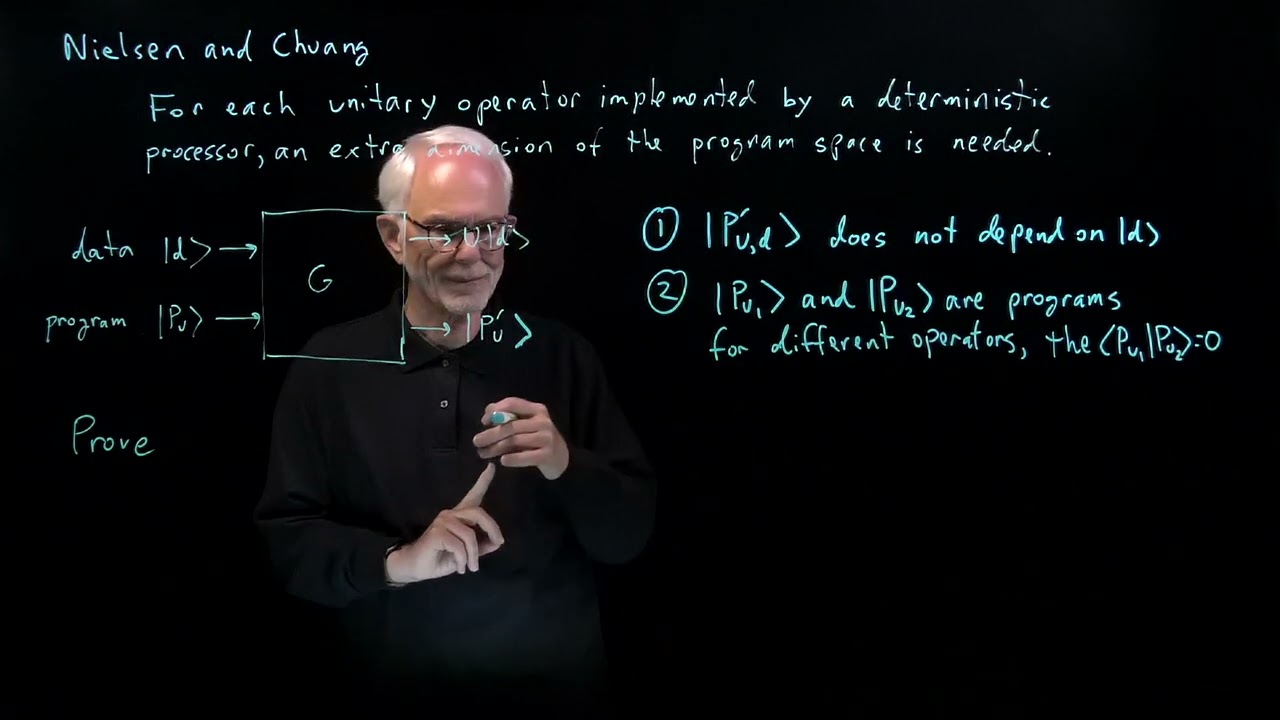 Nielsen and Chuang
For each unitary operator implemented by a deterministic
processor, an extra dimension of the program space is needed.
data |d⟩ → G → U|d⟩
program |P_U⟩ → → |P'_U⟩
① |P'_{U,d}⟩ does not depend on |d⟩
② |P_{U_1}⟩ and |P_{U_2}⟩ are programs
for different operators, the ⟨P_{U_1}|P_{U_2}⟩=0
Prove